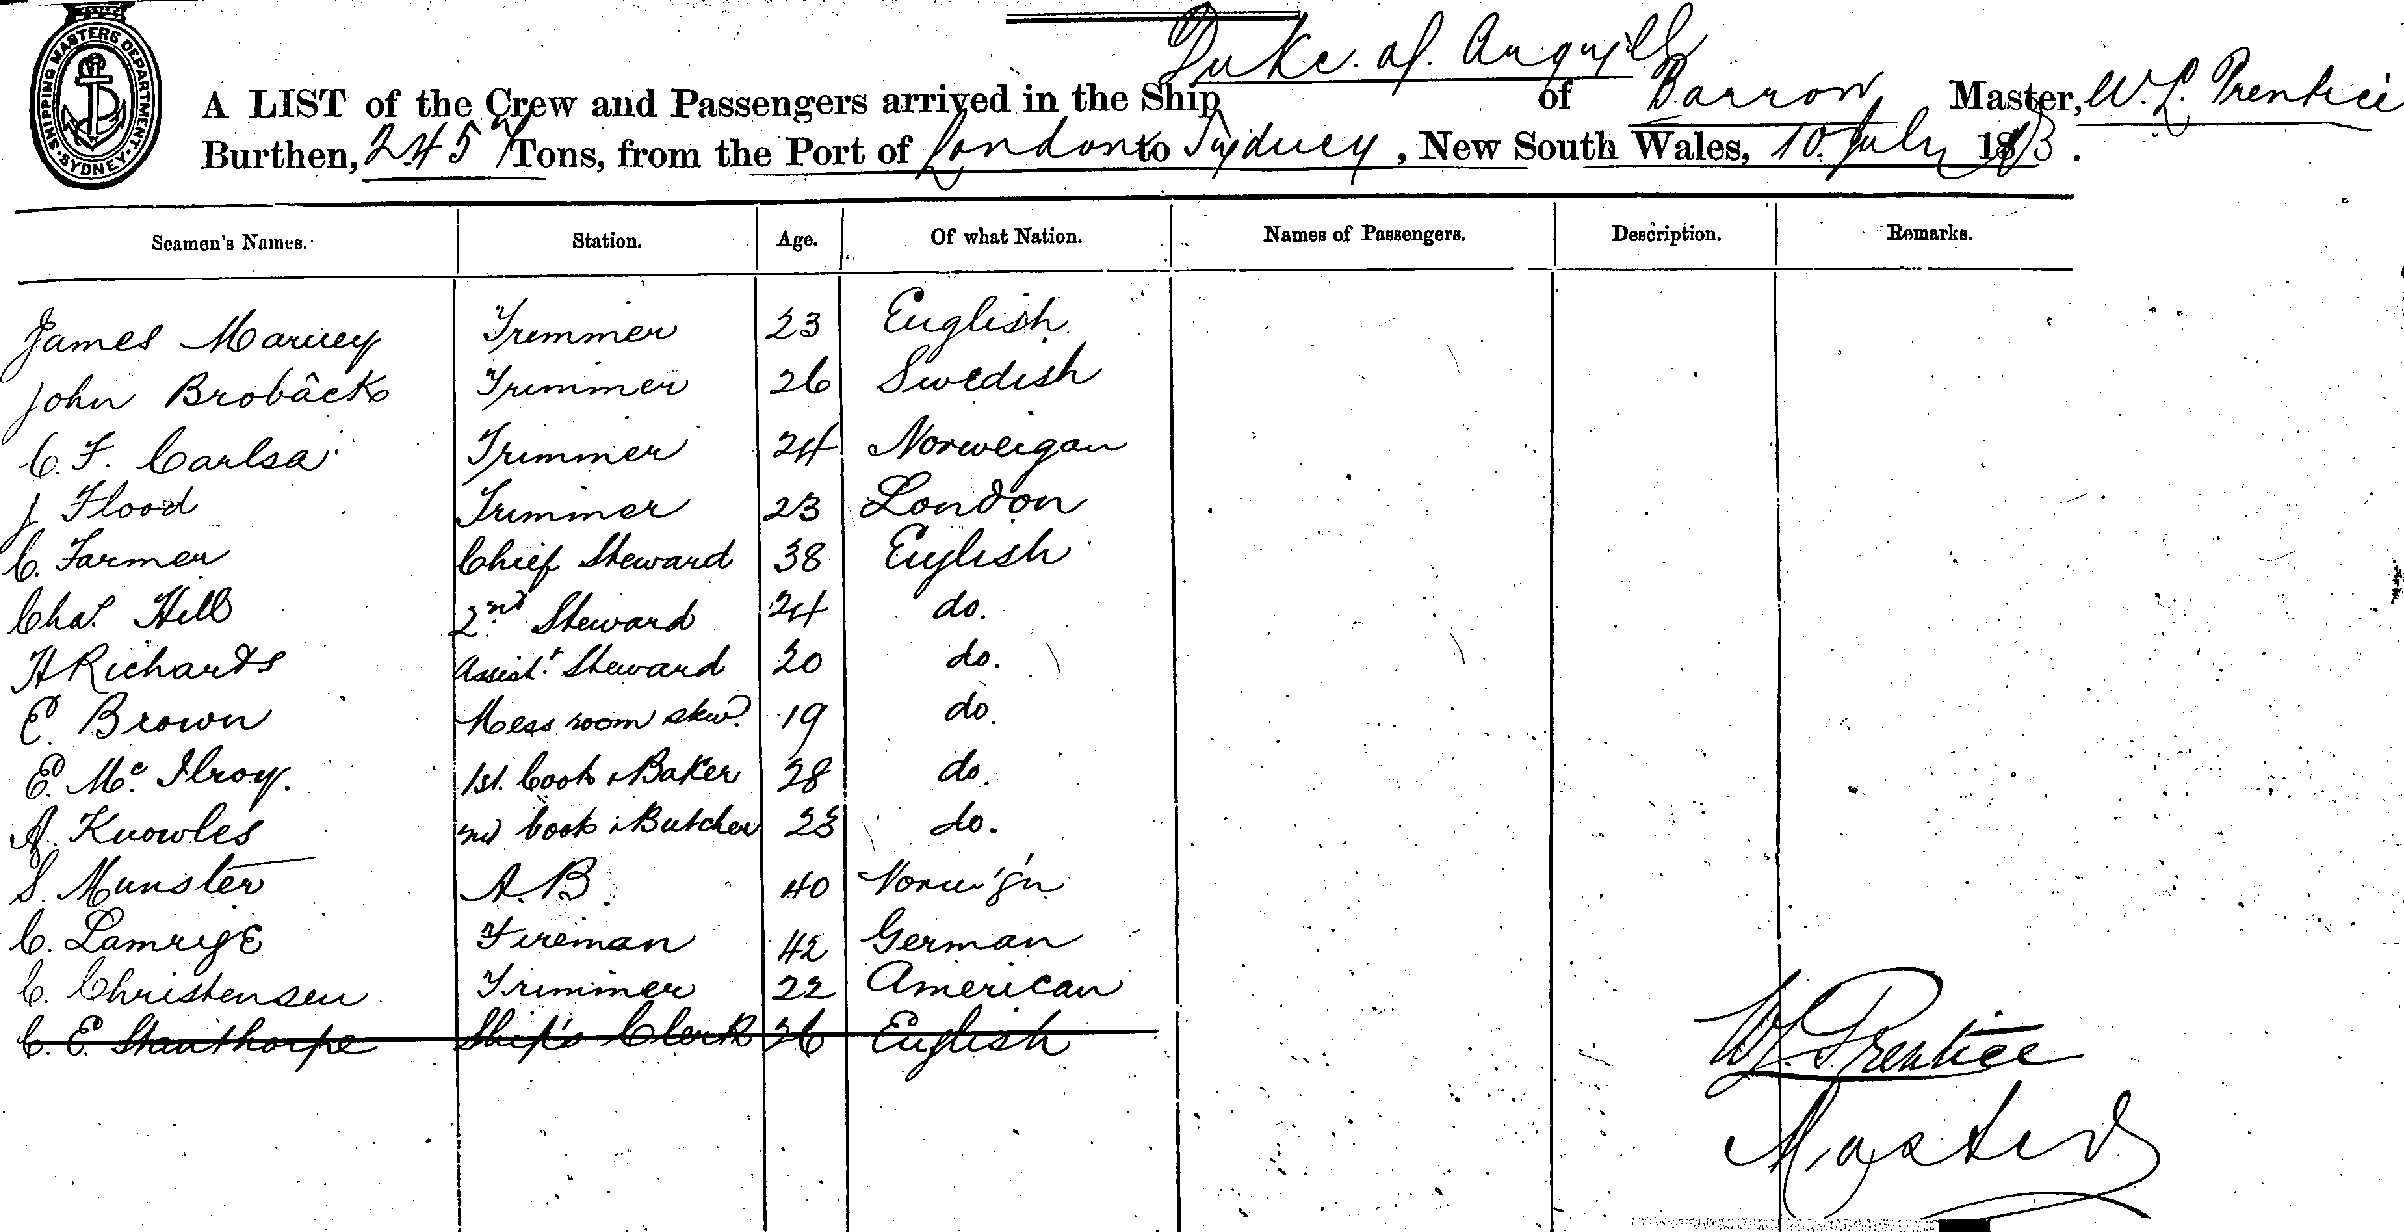 SHIPPING MASTERS DEPARTMENT. SYDNEY.
Duke of Argyll
A LIST of the Crew and Passengers arrived in the Ship of Barrow Master, W. L. Prentice
Burthen, 2457 Tons, from the Port of London to Sydney, New South Wales, 10 July 18
Seamen's Names. Station. Age. Of what Nation. Names of Passengers. Description. Remarks.
James Trimmer 23 English
John Brobâck Trimmer 26 Swedish
C. F. Carlsa Trimmer 24 Norweigan
J Flood Trimmer 23 London
C. Farmer Chief Steward 38 English
Chas. Hill 2nd Steward 24 do.
H Richards Assist. Steward 20 do.
E. Brown Mess room stew'd 19 do.
E. Mc. Ilroy. 1st. Cook & Baker 28 do.
A. Knowles 2nd Cook & Butcher 23 do.
S. Munster A.B. 40 Norw'gn
C. Fireman 42 German
C. Christensen Trimmer 22 American
C. E. Stanthorpe Ship's Clerk 36 English
W L Prentice
Master